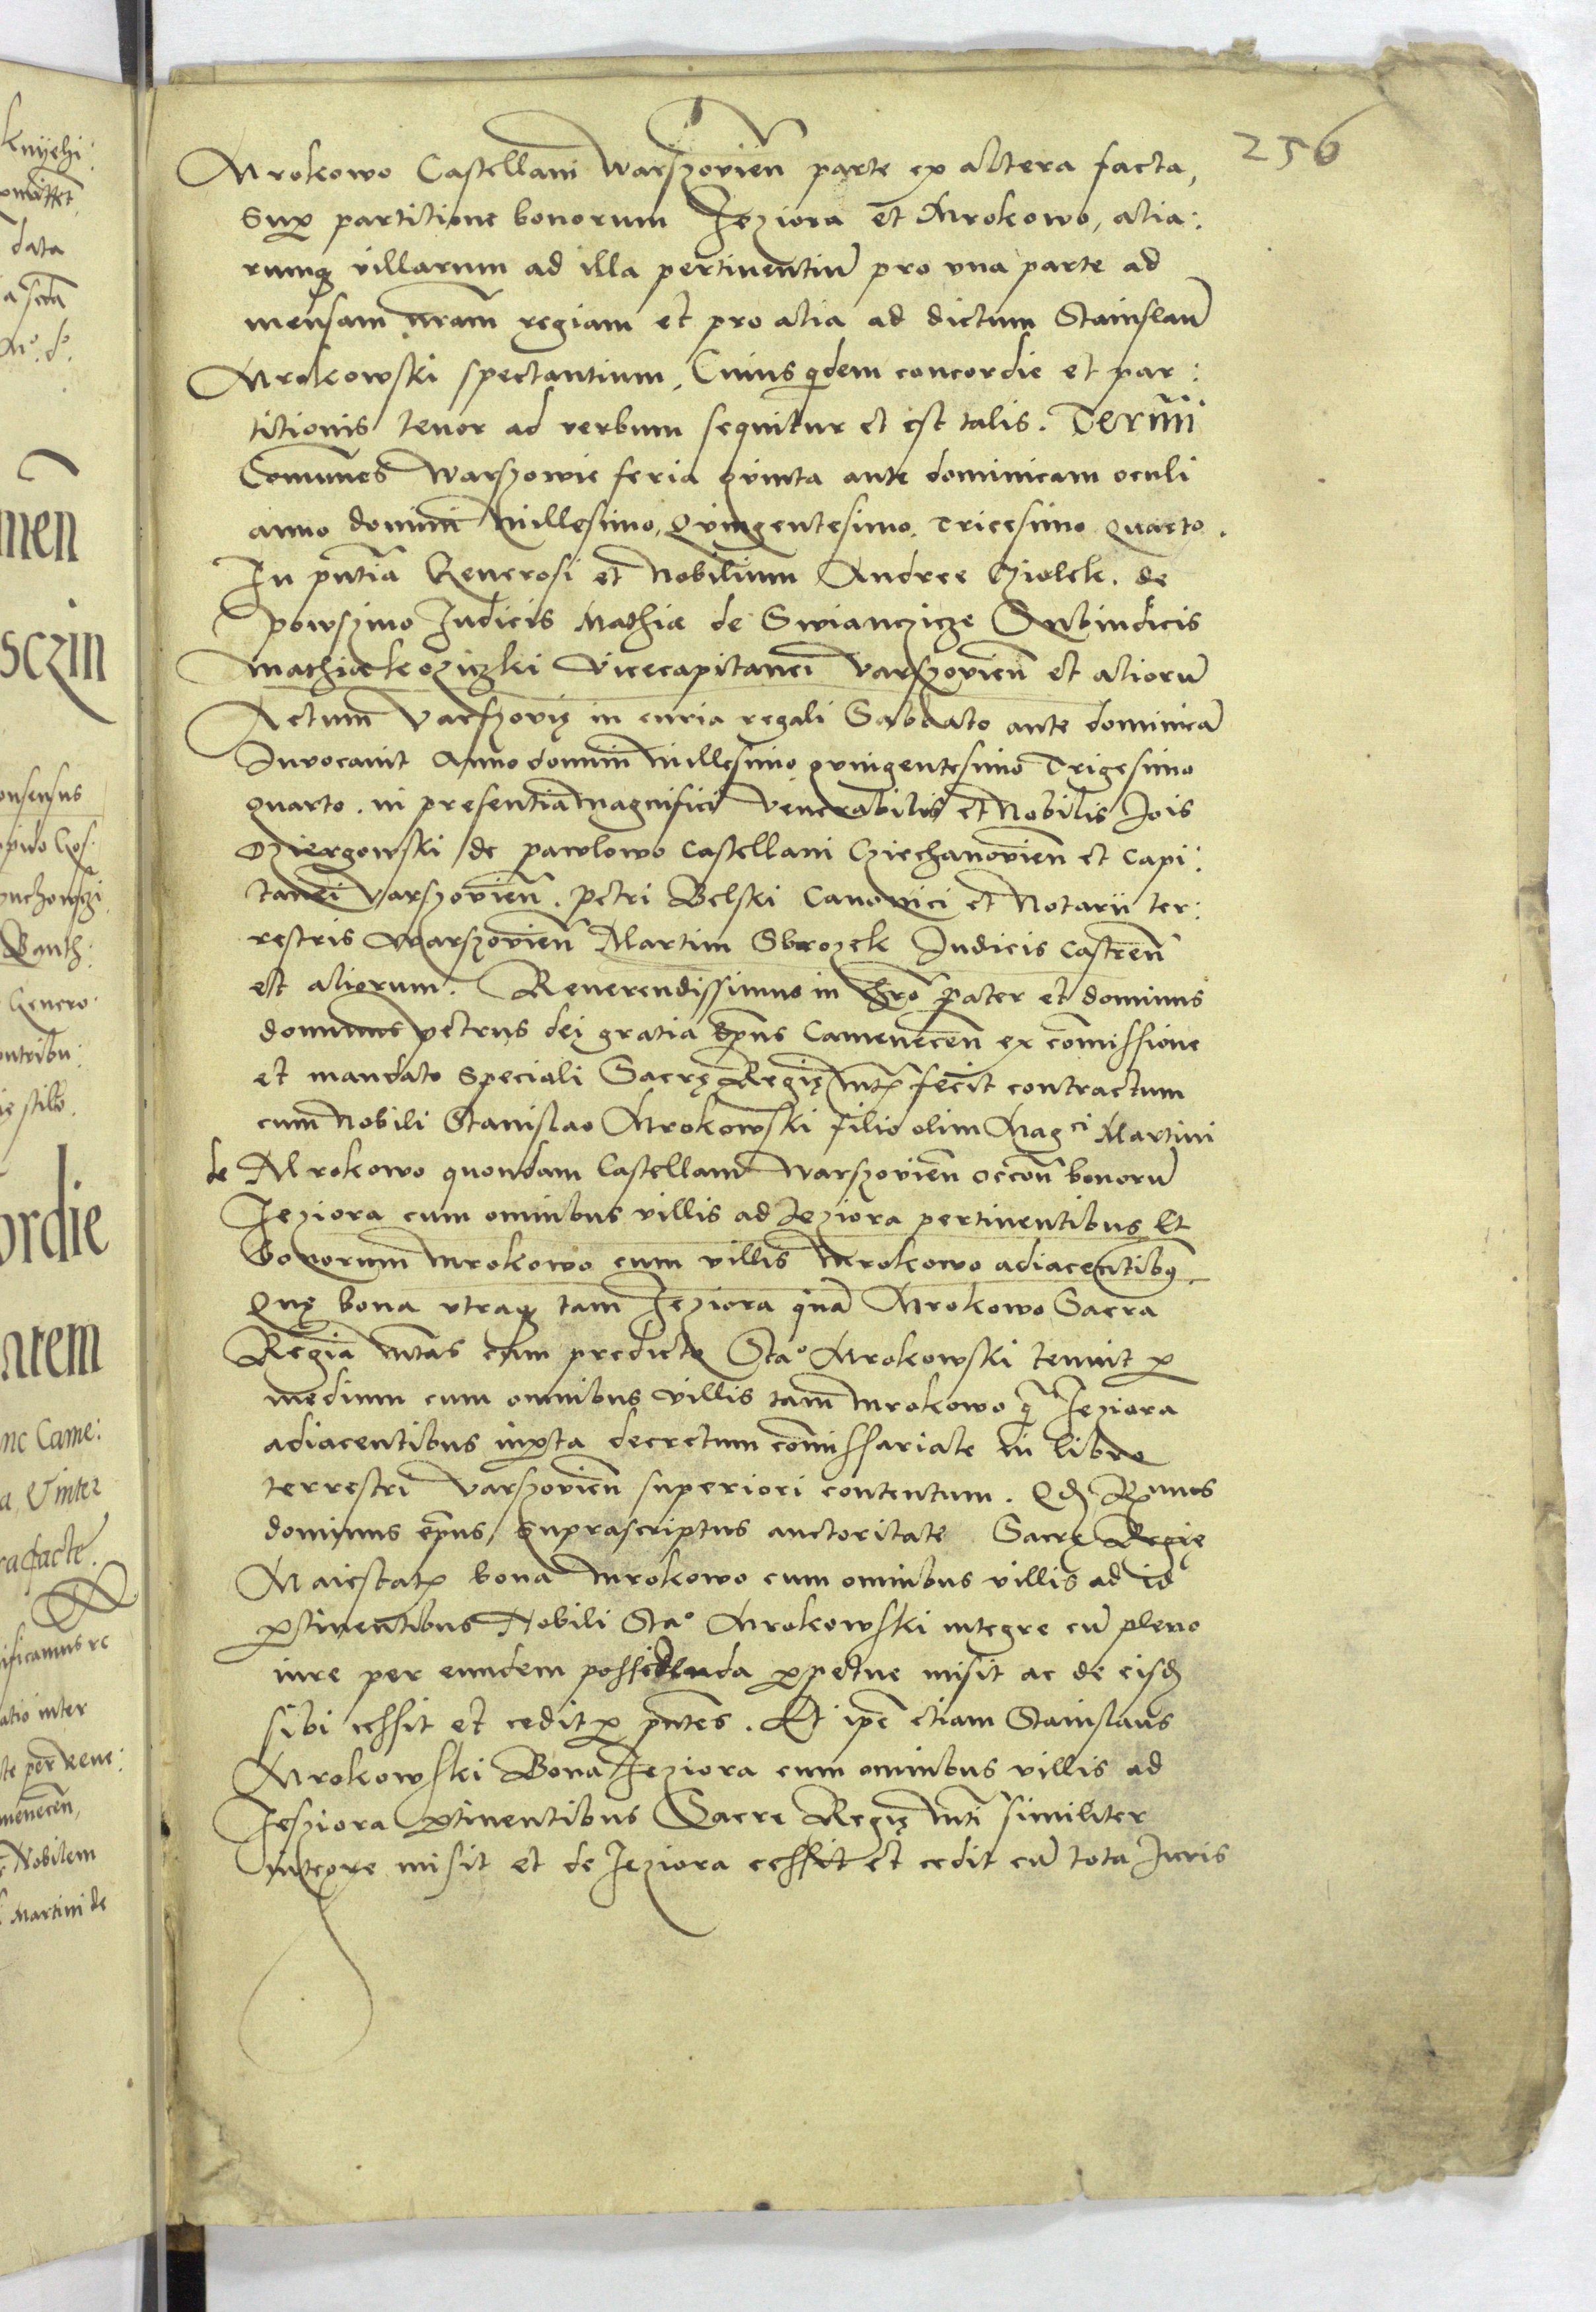 256
Mrokowo Castellani Warszovien̄ parte ex altera facta,
Sup̱ partitione bonorum Jeziora et Mrokowo, alia:
rumq̱ villarum ad illa pertinentiū pro vna parte ad
mensam nrām regiam et pro alia ad dictum Stanislaū
Mrokowski spectantium, Cuius qīdem concordie et par:
titionis tenor ad verbum sequitur et est talis. Termīī
Com̄unes Warszowie feria qvinta ante dominicam oculi
anno dominī millesimo, Qvingentesimo, Tricesimo Quarto.
In pn̄tia Generosi et Nobilium Andree Cziolek. de
powszino Judicis Mathiæ de Swianczicze Subiudicis
Mathiæ Vicecapitanei Varszovien̄ et aliorū
Actum Varszovię in curia regali Sabbato ante dominicā
Invocavit Anno dominī millesimo qvingentesimo Trigesimo
quarto. in presentia magnifici Venerabilis et Nobilis Jois
Dziergowski de pawlowo Castellani Cziechanovien̄ et Capi:
tanei Varszovien̄. Petri Belski Canonici et Notarii ter:
restris Warszovien̄ Martini Sbrozek Judicis Castren̄
et aliorum. Reverendissimus in Chrō pater et dominus
dominus petrus dei gratia Ep̄us Camenecen̄ ex com̄issione
et mandato Speciali Sacrę Regię mt̄is fecit contractum
cum Nobili Stanislao Mrokowski filio olim Magci Martini
de Mrokowo quondam Castellani Warszovien̄ occon̄ bonorū
Jeziora cum omnibus villis ad Jeziora pertinentibus Et
bonorum Mrokowo cum villis Mrokowo adiacentibꝯ.
Quę bona vtraq̱ tam Jeziora quā Mrokowo Sacra
Regia mtas cum predicto Stao Mrokowski tenuit p̱
medium cum omnibus villis tam Mrokowo q̄ Jeziora
adiacentibus iuxta decretum com̄issariale in libro
terrestri Varszovien̄ superiori contentum. Qđ Rmus
dominus ep̄us, Suprascriptus auctoritate Sacrę Regię
Maiestatis bona Mrokowo cum omnibus villis ad id
p̱tinentibus Nobili Stao Mrokowski integre cū pleno
iure per eundem possidenda p̱petue misit ac de eisđ
sibi cessit et cedit p̱ pn̄tes. Et ip̄e etiam Stanislaus
Mrokowski Bona Jeziora cum omnibus villis ad
Jesziora p̱tinentibus Sacre Regię mti similiter
integre misit et de Jeziora cessit et cedit cū tota Juris